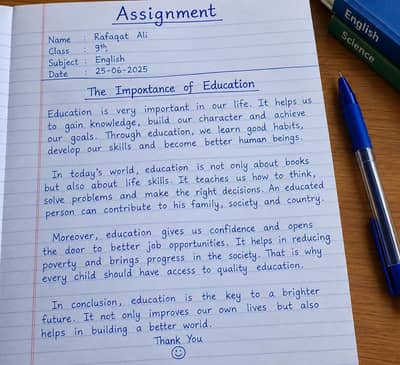 Assignment
Name : Rafaqat Ali
Class : 9th
Subject : English
Date : 25-06-2025
The Importance of Education
Education is very important in our life. It helps us
to gain knowledge, build our character and achieve
our goals. Through education, we learn good habits,
develop our skills and become better human beings.
In today's world, education is not only about books
but also about life skills. It teaches us how to think,
solve problems and make the right decisions. An educated
person can contribute to his family, society and country.
Moreover, education gives us confidence and opens
the door to better job opportunities. It helps in reducing
poverty and brings progress in the society. That is why
every child should have access to quality education.
In conclusion, education is the key to a brighter
future. It not only improves our own lives but also
helps in building a better world.
Thank You
English
Science